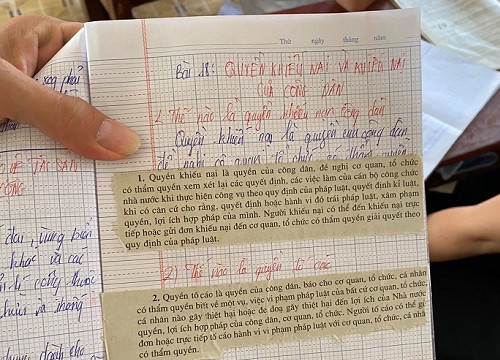 Thứ ngày tháng năm
Bài 18: QUYỀN KHIẾU NẠI VÀ KHIẾU NẠI
CỦA CÔNG DÂN
1. Thế nào là quyền khiếu nại công dân
Quyền khiếu nại là quyền của công dân
đề nghị cơ quan tổ chức có thẩm quyền
1. Quyền khiếu nại là quyền của công dân, đề nghị cơ quan, tổ chức
có thẩm quyền xem xét lại các quyết định, các việc làm của cán bộ công chức
nhà nước khi thực hiện công vụ theo quy định của pháp luật, quyết định kỉ luật,
khi có căn cứ cho rằng, quyết định hoặc hành vi đó trái pháp luật, xâm phạm
quyền, lợi ích hợp pháp của mình. Người khiếu nại có thể đến khiếu nại trực
tiếp hoặc gửi đơn khiếu nại đến cơ quan, tổ chức có thẩm quyền giải quyết theo
quy định của pháp luật.
2) Thế nào là quyền tố cáo
2. Quyền tố cáo là quyền của công dân, báo cho cơ quan, tổ chức, cá nhân
có thẩm quyền biết về một vụ, việc vi phạm pháp luật của bất cứ cơ quan, tổ chức,
cá nhân nào gây thiệt hại hoặc đe doạ gây thiệt hại đến lợi ích của Nhà nước
quyền, lợi ích hợp pháp của công dân, cơ quan, tổ chức. Người tố cáo có thể gửi
đơn hoặc trực tiếp tố cáo hành vi vi phạm pháp luật với cơ quan, tổ chức, cá nhâ
có thẩm quyền.
TÀI SẢN
CỘNG
khác và các